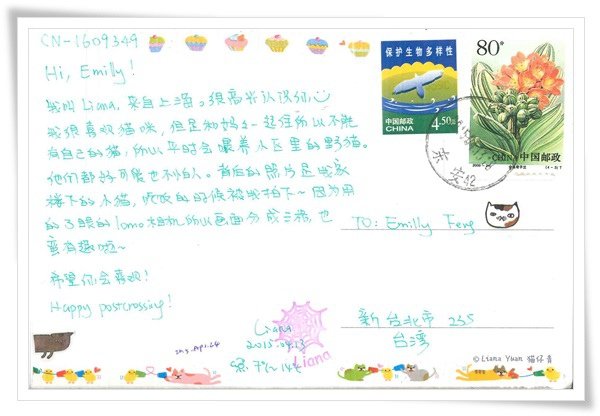 CN-1609349
Hi, Emilly!
我叫 Liana, 来自上海。很高兴认识你
我很喜欢猫咪, 但是和妈妈一起住所以不能
有自己的猫, 所以平时会喂养小区里的野猫。
他们都好可爱也不怕人。背后的照片是我家
楼下的小猫, 吃饭的时候被我拍下~ 因为用
的3眼的lomo相机所以画面分成三格, 也
蛮有趣啦~
希望你会喜欢!
Happy postcrossing!
Liana
2015.04.13
7℃~14℃
Liana
保护生物多样性
中国邮政
CHINA
4.50元
80分
CHINA 中国邮政
2000
(4-2) T
TO: Emilly Feng
新台北市 235
台湾
©Liana Yuan 猫仔青